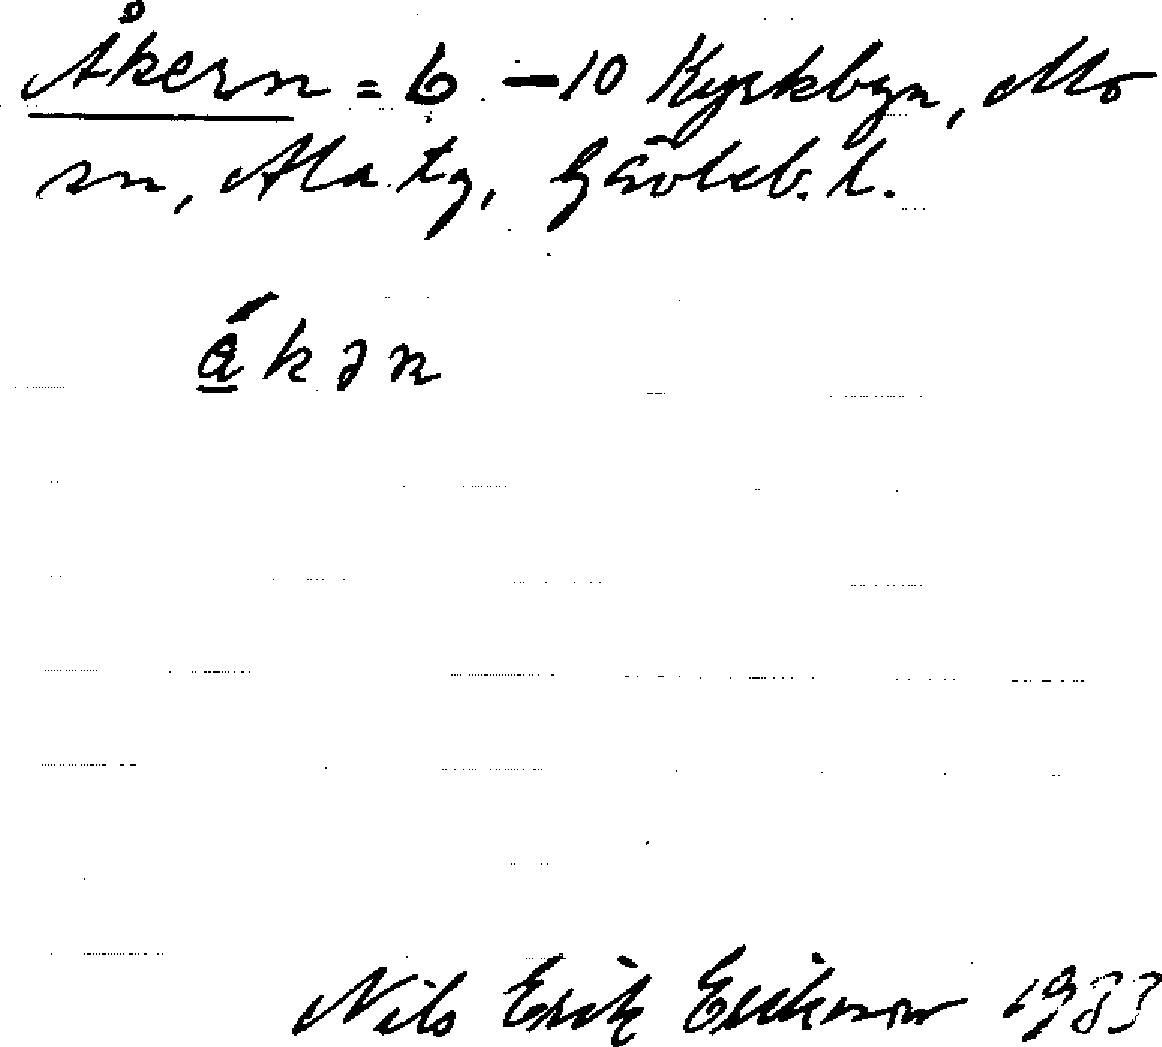 Åkern = 6 – 10 Kyrkbyn, Mo
sn, Ala tg, Gävleb. l.
åkən
Nils Erik Eriksson 1933